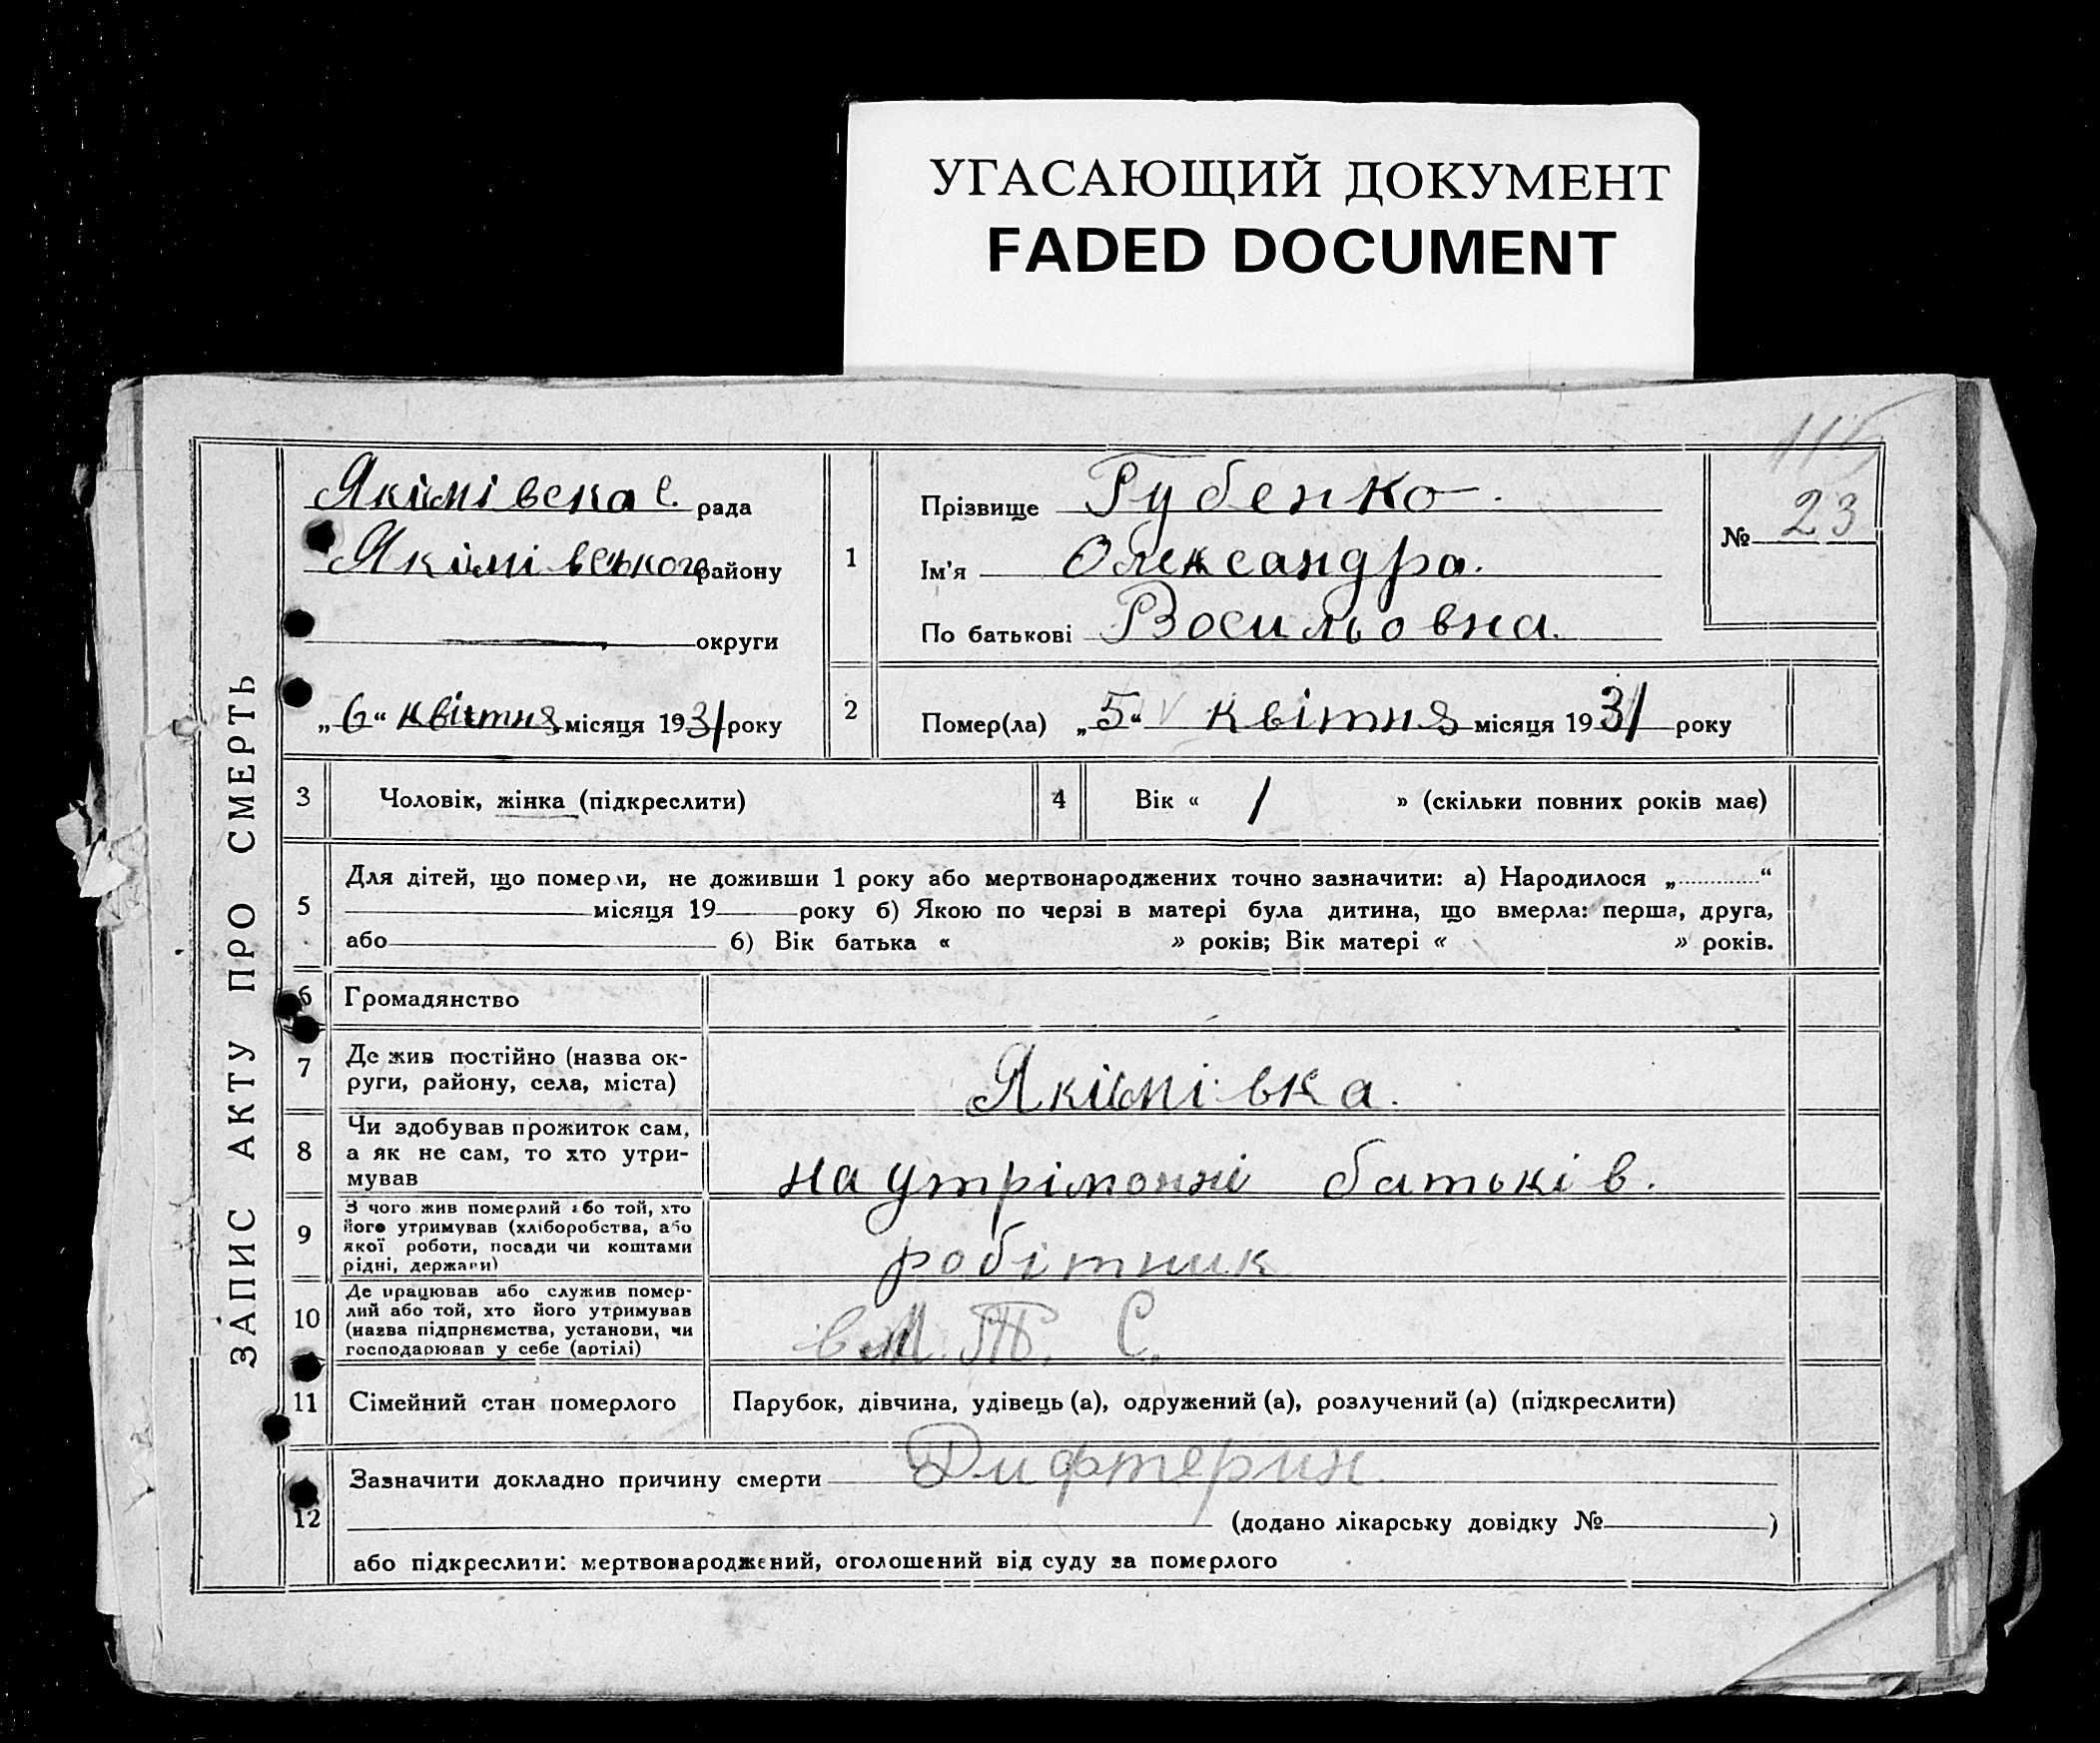 УГАСАЮЩИЙ ДОКУМЕНТ
FADED DOCUMENT
ЗАПИС АКТУ ПРО СМЕРТЬ
Якімівска с. рада
Якімівського району
округи
„6“ квітня місяця 1931 року
1
Прізвище Губенко.
Ім'я Олександра.
По батькові Васильовна.
№ 23
2
Помер(ла) „5“ квітня місяця 1931 року
3 Чоловік, жінка (підкреслити)
4 Вік « 1 » (скільки повних років має)
5
Для дітей, що померли, не доживши 1 року або мертвонароджених точно зазначити: а) Народилося „............“
місяця 19 року б) Якою по черзі в матері була дитина, що вмерла: перша, друга,
або 6) Вік батька « » років; Вік матері « » років.
6 Громадянство
7
Де жив постійно (назва ок-
руги, району, села, міста)
Якімівка.
8
Чи здобував прожиток сам,
а як не сам, то хто утри-
мував
на утріманні батьків.
9
З чого жив померлий або той, хто
його утримував (хліборобства, або
якої роботи, посади чи коштами
рідні, держави)
робітник
10
Де працював або служив помер-
лий або той, хто його утримував
(назва підприємства, установи, чи
господарював у себе (артілі)
в М. Т. С.
11 Сімейний стан померлого
Парубок, дівчина, удівець (а), одружений (а), розлучений (а) (підкреслити)
12
Зазначити докладно причину смерти Дифтерин
(додано лікарську довідку № )
або підкреслити: мертвонароджений, оголошений від суду за померлого